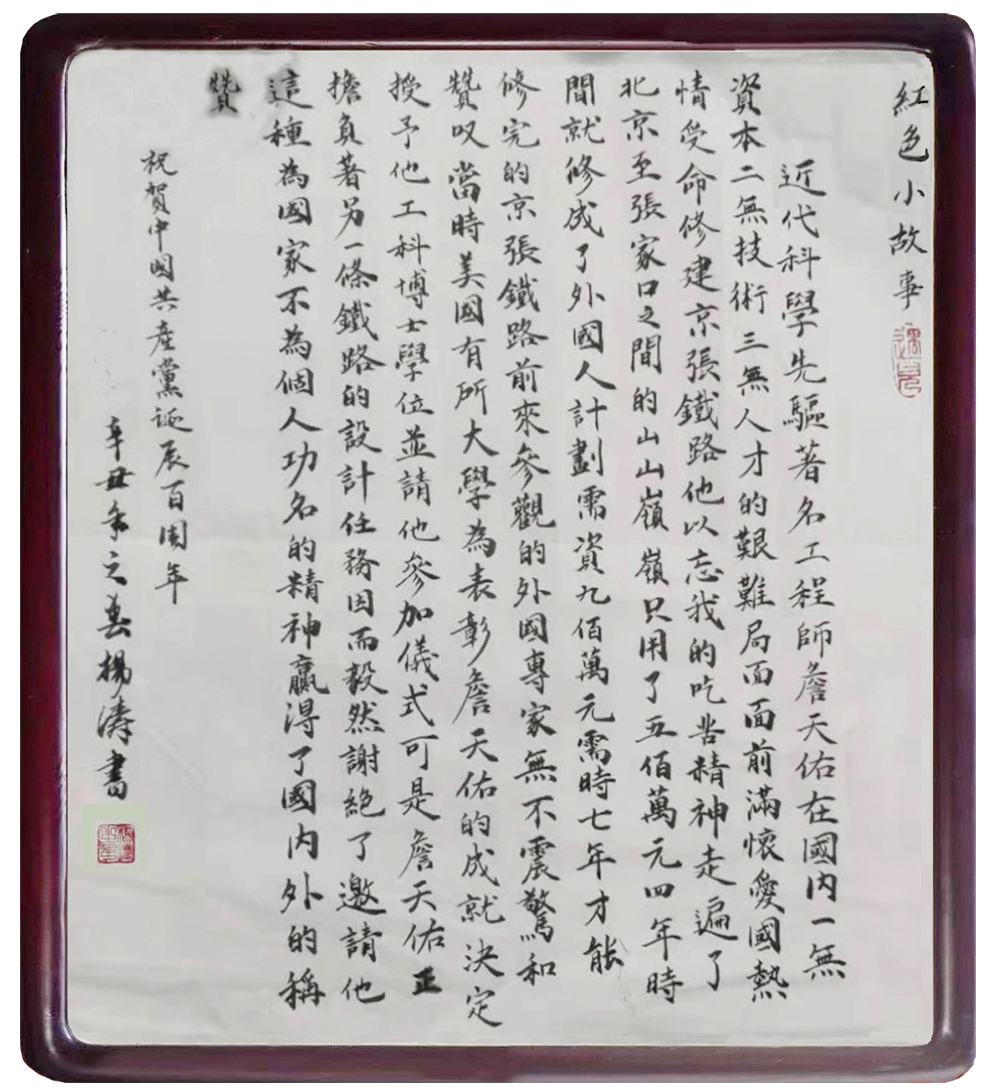 紅色小故事
近代科學先驅著名工程師詹天佑在國内一無
資本二無技術三無人才的艱難局面面前滿懷愛國熱
情受命修建京張鐵路他以忘我的吃苦精神走遍了
北京至張家口之間的山山嶺嶺只用了五佰萬元四年時
間就修成了外國人計劃需資九佰萬元需時七年才能
修完的京張鐵路前來參觀的外國專家無不震驚和
贊叹當時美國有所大學為表彰詹天佑的成就決定
授予他工科博士學位並請他參加儀式可是詹天佑正
擔負著另一條鐵路的設計任務因而毅然謝絶了邀請他
這種為國家不為個人功名的精神贏得了國内外的稱
贊
祝賀中國共產黨诞辰百周年
辛丑年之春楊濤書